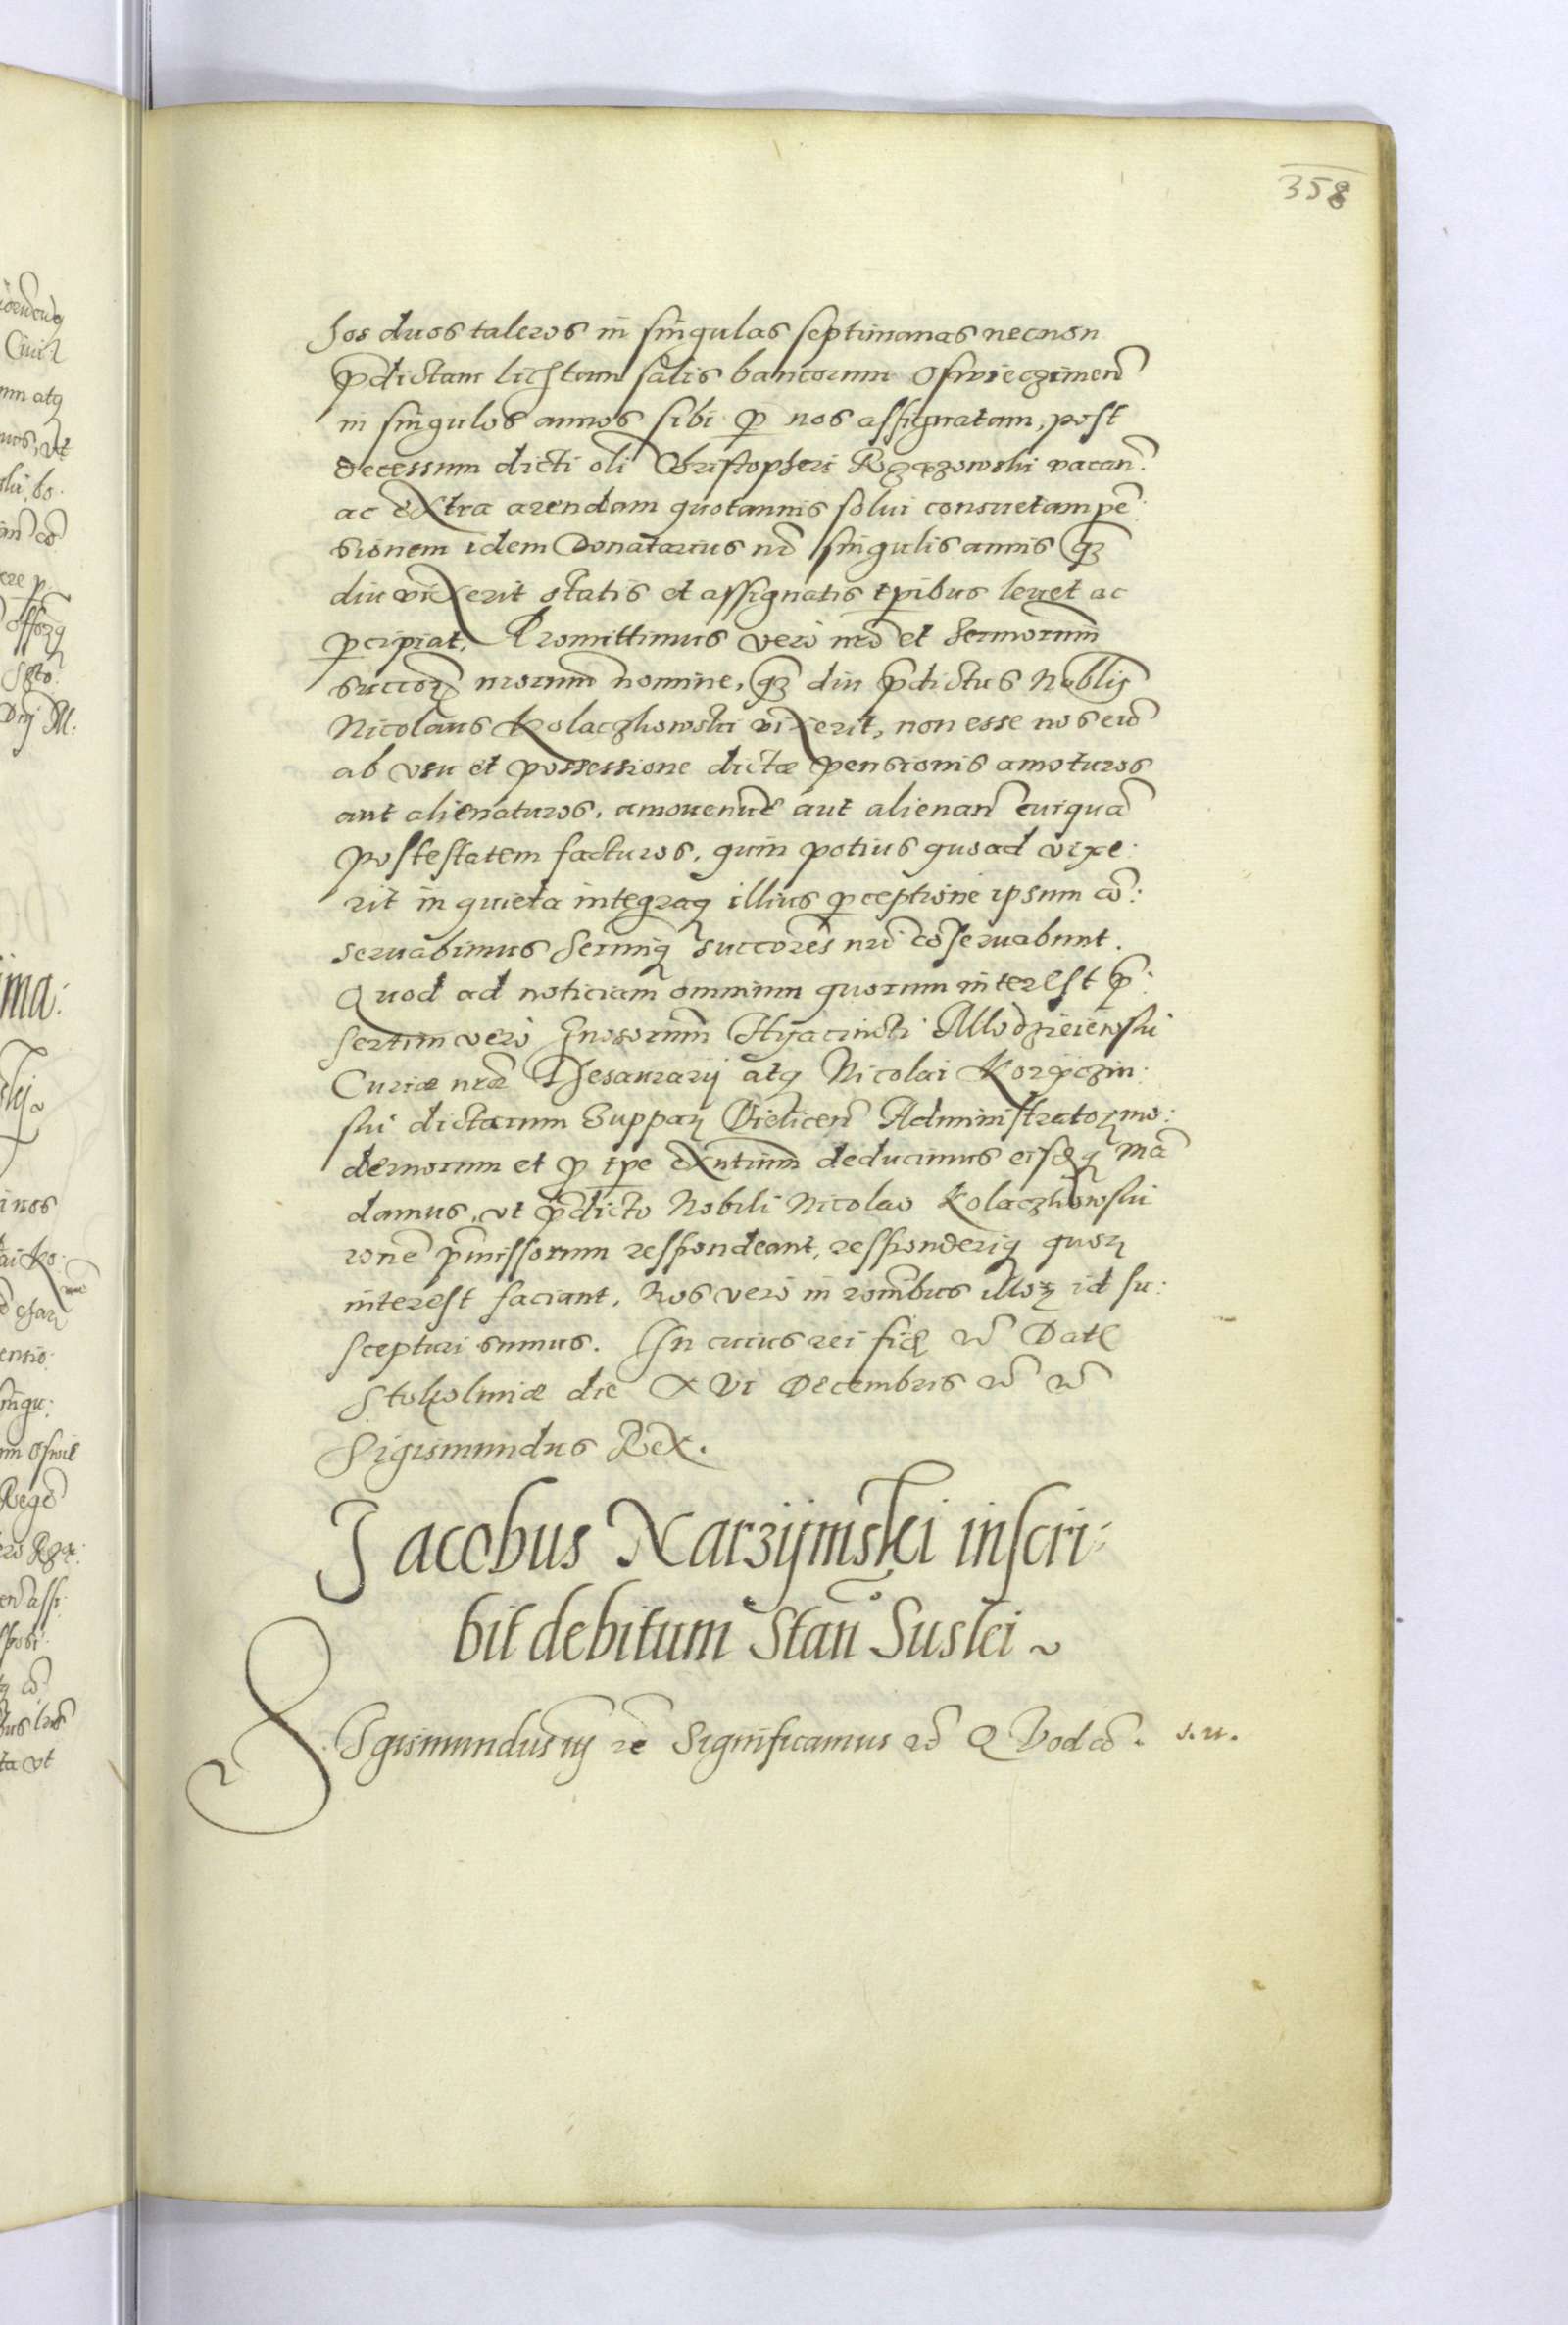 358
hos duos taleros in singulas septimanas necnon
p̄dictam lichtam salis bancorum Osswieczimen̄
in singulos annos sibi p nos assignatam, post
decessum dicti oli Christopheri Rgzowski vacan:
ac extra arendam quotannis solui consuetam pe:
sionem idem Donatarius nr̄ singulis annis q̄
diu vixerit statis et assignatis tpibus leuet ac
pcipiat. Promittimus vero nrō et Sermorum
succorȝ nrorum nomine, q̄ diu p̄dictus Nobīlis
Nicolaus Kolaczkowski vixerit, non esse nos eūd
ab vsu et possessione dictæ pensionis amoturos
aut alienaturos, amouen̄ve aut alienan̄ cuiquā
postestatem facturos, quin potius quoad vixe:
rit in quieta integraq illius pceptione ipsum cō:
seruabimus Sermiq succores nrī cōseruabunt.
Quod ad noticiam omnium quorum interest p̄:
sertim vero Gnosorum Hyacincti Mlodzieiewski
Curiæ nræ Thesaurarij atq Nicolai Korÿczin:
ski dictarum Suppaȝ Vielicen̄ Administratoȝ mo:
dernorum et p tpe exntium deducimus eisdēq mā
damus, vt p̄dicto Nobili Nicolao Kolaczkowski
ronē p̄missorum respondeant, responderiq quoȝ
interest faciant. Nos vero in ronibus illoȝ id su:
scepturi sumus. In cuius rei fidē ꝛc̄ Datȝ
Stokolmiæ die XVI Decembris ꝛc̄ ꝛc̄
Sigismundus Rex.
Jacobus Narzijmski inscri:
bit debitum Stanō Suski ~
SIgismundus iij ꝛē Significamus ꝛc̄ Quod cō. s. u.